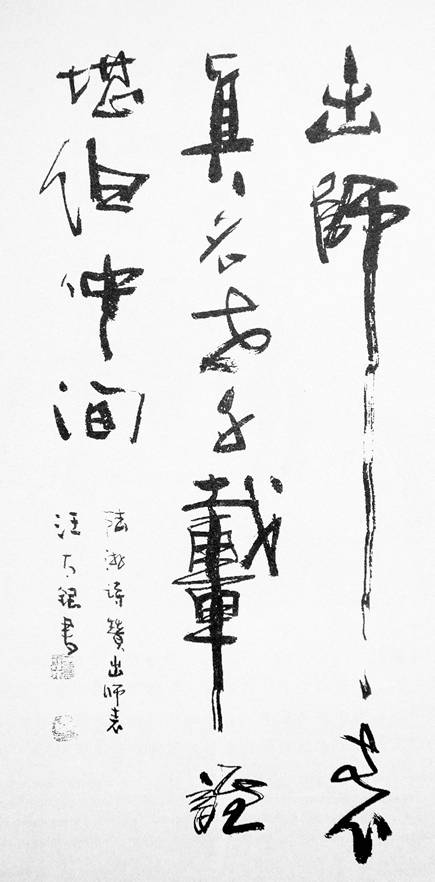 出師一表
真名世千載誰
堪伯仲间
陆游诗赞出师表
汪 银書